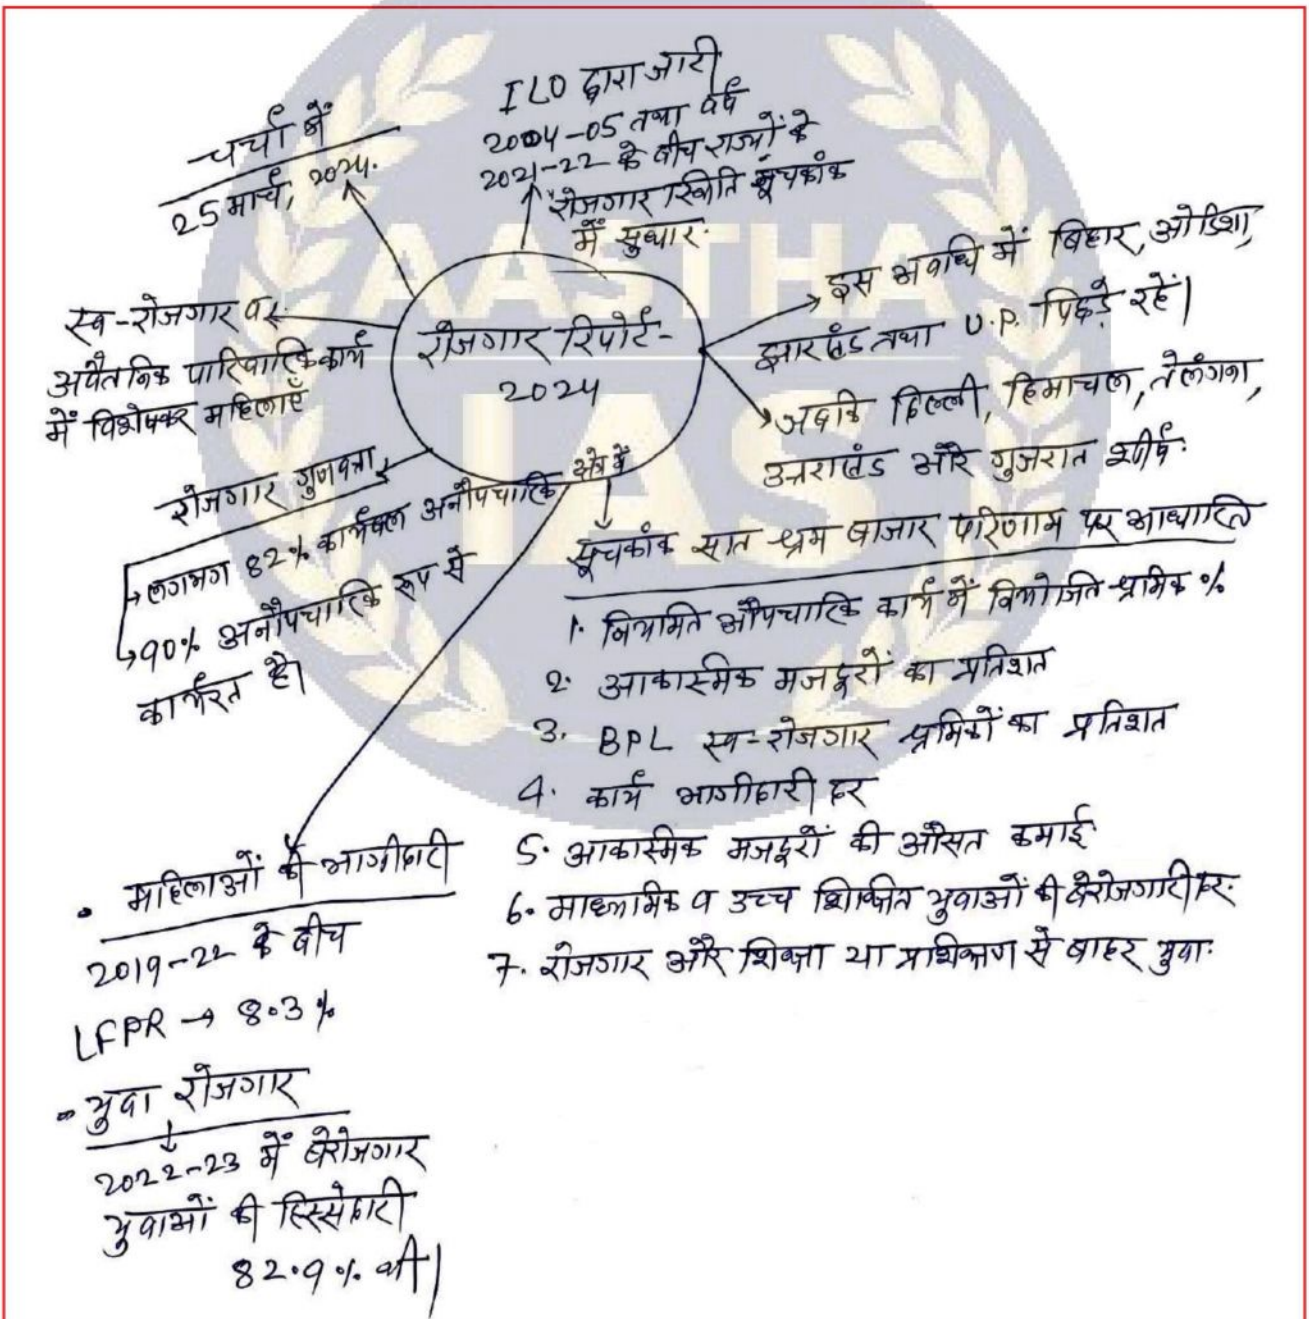 AASTHA
IAS
चर्चा में
25 मार्च, 2024.
ILO द्वारा जारी
2004-05 तथा वर्ष
2021-22 के बीच राज्यों के
रोजगार स्थिति सूचकांक
में सुधार.
रोजगार रिपोर्ट-
2024
इस अवधि में बिहार, ओडिशा,
झारखंड तथा U.P. पिछड़े रहें।
जबकि दिल्ली, हिमाचल, तेलंगना,
उत्तराखंड और गुजरात शीर्ष.
स्व-रोजगार व
अवैतनिक पारिवारिक कार्य
में विशेषकर महिलाएँ
रोजगार गुणवत्ता
लगभग 82% कार्यबल अनौपचारिक क्षेत्र में
90% अनौपचारिक रूप से
कार्यरत है।
सूचकांक सात श्रम बाजार परिणाम पर आधारित
1. नियमित औपचारिक कार्य में नियोजित श्रमिक %
2. आकास्मिक मजदूरों का प्रतिशत
3. BPL स्व-रोजगार श्रमिकों का प्रतिशत
4. कार्य भागीदारी दर
5. आकास्मिक मजदूरों की औसत कमाई
6. माध्यमिक व उच्च शिक्षित युवाओं की बेरोजगारी दर.
7. रोजगार और शिक्षा या प्रशिक्षण से बाहर युवा.
• महिलाओं की भागीदारी
2019-22 के बीच
LFPR → 8.3%
• युवा रोजगार
2022-23 में बेरोजगार
युवाओं की हिस्सेदारी
82.9% थी।